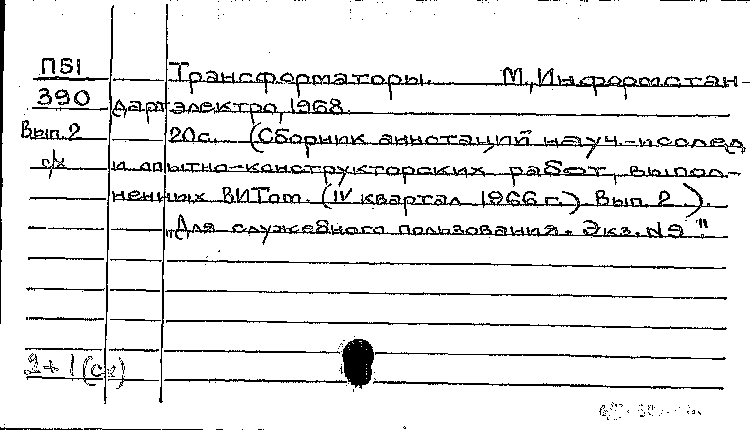 П51 Трансформаторы. М., Информстан-
390 дартэлектро, 1968.
Вып.2 20с. (Сборник аннотаций науч.-исслед
с/х и опытно-конструкторских работ, выпол-
ненных ВИТом. (IV квартал 1966 г.) Вып. 2.).
"Для служебного пользования. Экз. №9"
2+1(сх)